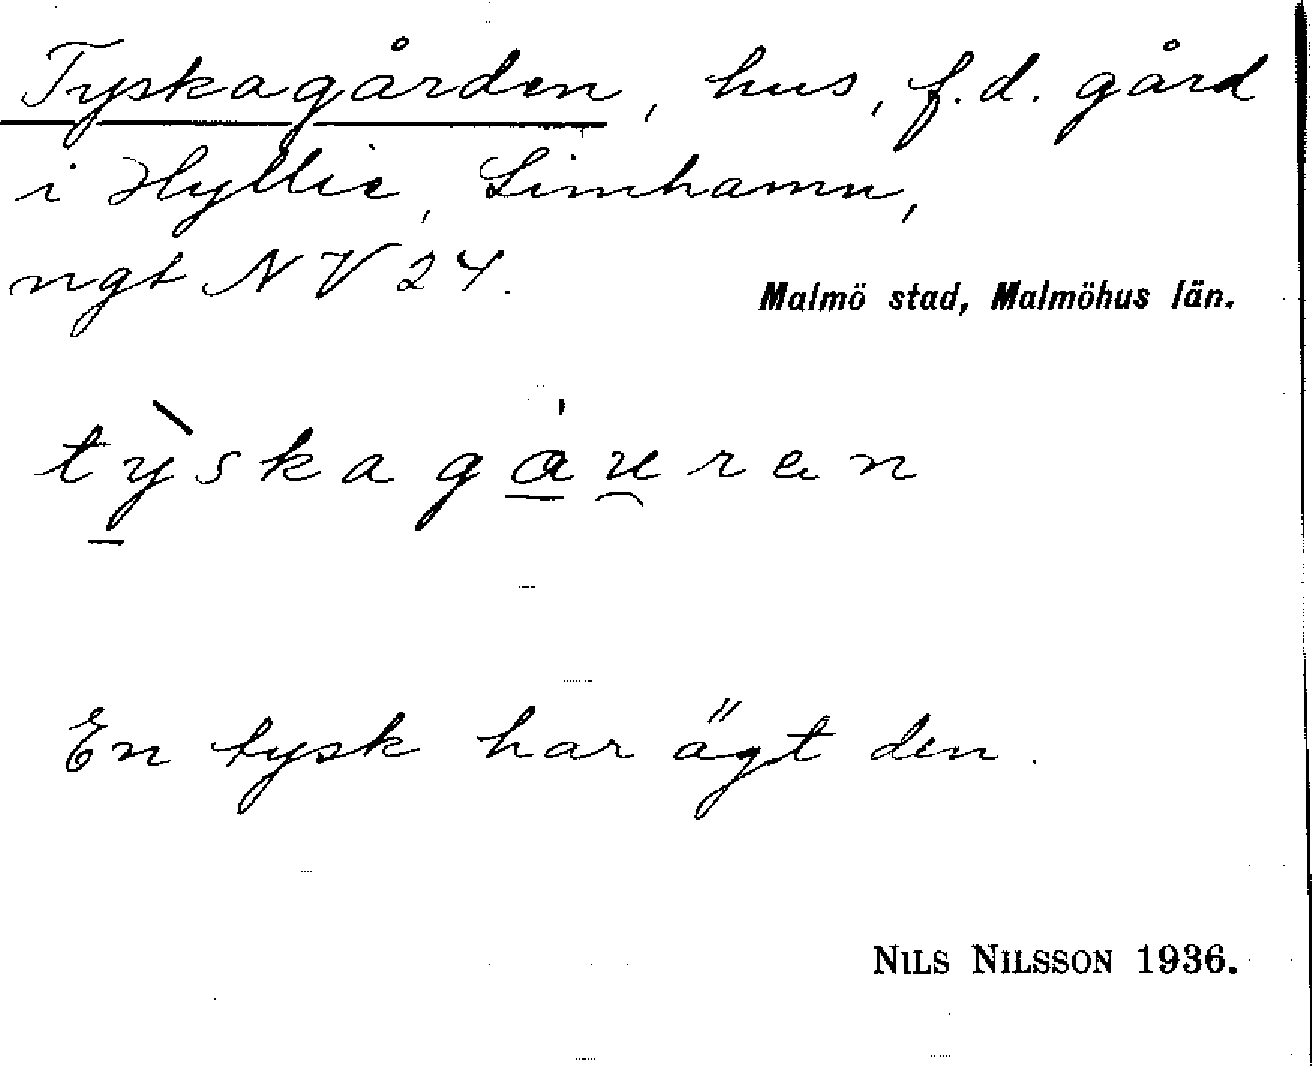 Tyskagården, hus, f.d. gård
i Hyllie, Limhamn,
ngt NV 24.
Malmö stad, Malmöhus län.
tỳskagáu̯ran
En tysk har ägt den.
NILS NILSSON 1936.